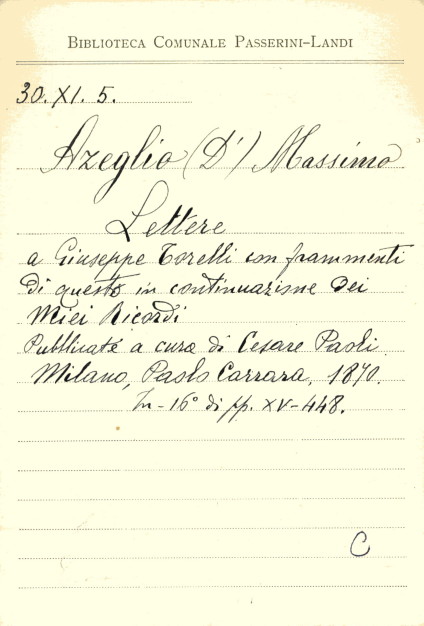 BIBLIOTECA COMUNALE PASSERINI-LANDI
30. XI. 5.
Azeglio (D') Massimo
Lettere
a Giuseppe Torelli con frammenti
di questo in continuazione dei
Miei Ricordi
Pubblicate a cura di Cesare Paoli
Milano, Paolo Carrara, 1870.
In-16° di pp. XV-448.
C